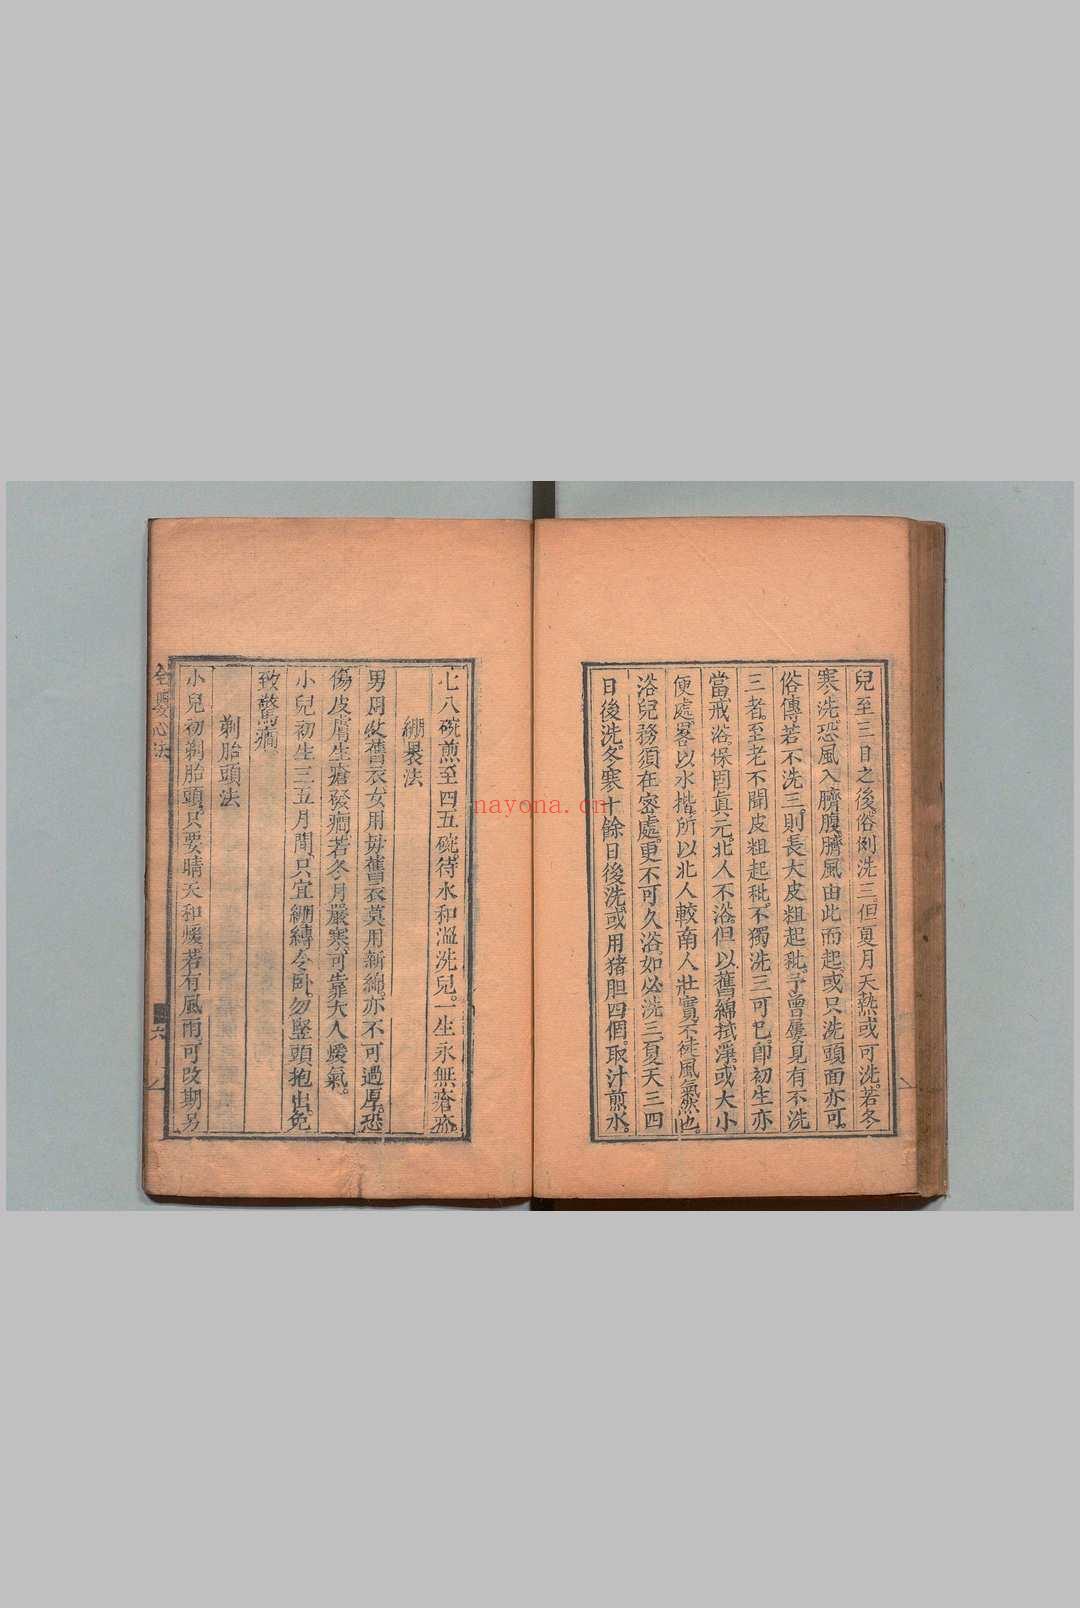 兒至三日之後。俗例洗三。但夏月天熱或可洗。若冬
寒洗恐風入臍腹。臍風由此而起。或只洗頭面亦可。
俗傳若不洗三。則長大皮粗起秕。予曾屢見有不洗
三者。至老不聞皮粗起秕。不獨洗三可已。即初生亦
當戒浴。保固眞元。北人不浴。但以舊綿拭淨。或大小
便處。畧以水揩。所以北人較南人壯實。不徒風氣然也。
浴兒務須在密處。更不可久浴。如必洗三。夏天三四
日後洗。冬寒十餘日後洗。或用猪胆四個。取汁煎水。
七八碗煎至四五碗待水和溫洗兒。一生永無瘡疥
綳裹法
男用父舊衣女用母舊衣莫用新綿。亦不可過厚。恐
傷皮膚生瘡發癎。若冬月嚴寒。可靠大人煖氣。
小兒初生三五月間。只宜綳縛令卧。勿竪頭抱出。免
致驚癎。
剃胎頭法
小兒初剃胎頭。只要晴天和煖。若有風雨。可改期另
心法
六
nayona.cn